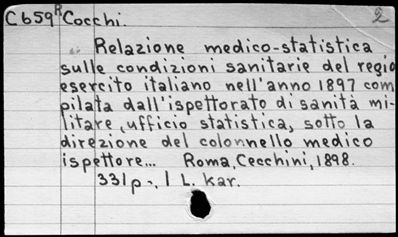 C659R Cocchi. 2
Relazione medico-statistica
sulle condizioni sanitarie del regio
esercito italiano nell'anno 1897 com
pilata dall'ispettorato di sanità mi-
litare, ufficio statistica, sotto la
direzione del colonnello medico
ispettore... Roma, Cecchini, 1898.
331p., 1 L. kar.